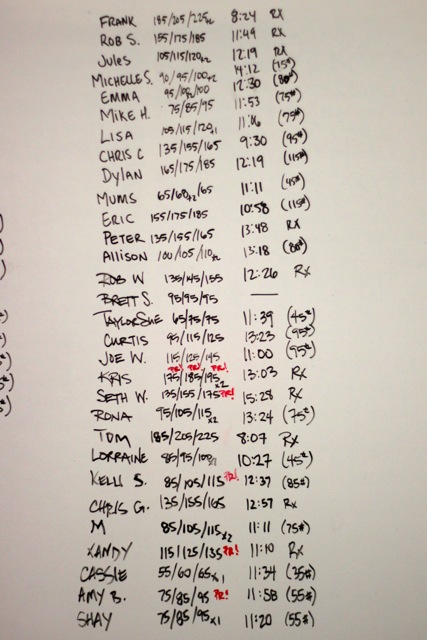 FRANK 185/205/225x2 8:24 RX
ROB S. 155/175/185 11:49 RX
Jules 105/115/120x2 12:19 RX
MICHELLE S. 90/95/100x2 14:12 (75#)
EMMA 95/100/100 12:30 (80#)
MIKE H. 75/85/95 11:53 (75#)
LISA 105/115/120x1 11:16 (75#)
CHRIS C 135/155/165 9:30 (95#)
DYLAN 165/175/185 12:19 (115#)
MUMS 65/60x2/65 11:11 (45#)
ERIC 155/175/185 10:58 (115#)
PETER 135/155/165 13:48 RX
Allison 100/105/110x2 13:18 (80#)
ROB W 135/145/155 12:26 Rx
BRETT S. 95/95/95 —
TAYLOR SUE 65/75/75 11:39 (45#)
CURTIS 95/115/125 13:23 (95#)
JOE W. 115/125/145 11:00 (95#)
PR! PR! PR!
KRIS 175/185/195x2 13:03 RX
SETH W. 135/155/175 PR! 15:28 RX
RONA 95/105/115x2 13:24 (75#)
TOM 185/205/225 8:07 Rx
LORRAINE 85/95/100 10:27 (45#)
KELLI S. 85/105/115 PR! 12:37 (85#)
CHRIS G. 135/155/165 12:57 Rx
M 85/105/115x2 11:11 (75#)
XANDY 115/125/135 PR! 11:10 Rx
CASSIE 55/60/65x1 11:34 (35#)
AMY B. 75/85/95 PR! 11:58 (55#)
SHAY 75/85/95x1 11:20 (55#)